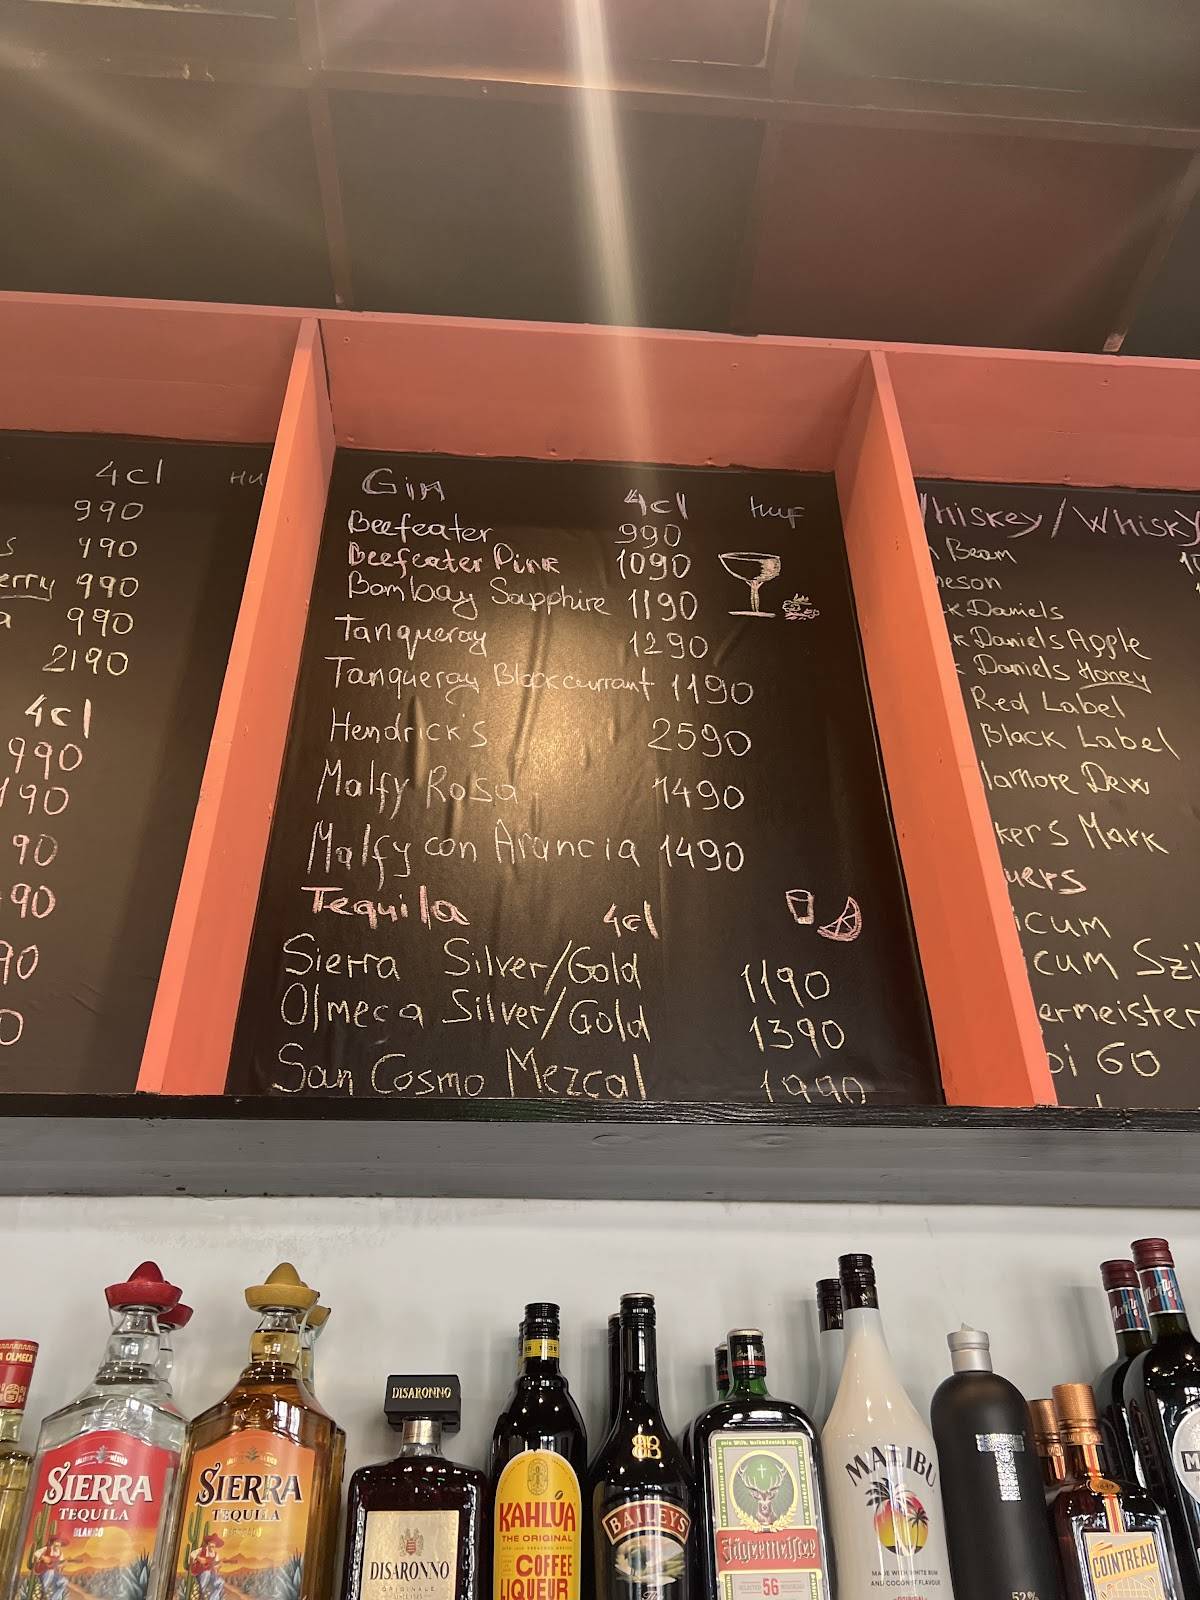 4cl HU
990
s 990
erry 990
a 990
2190
4cl
990
190
90
90
90
0
Gin 4cl HUF
Beefeater 990
Beefeater Pink 1090
Bombay Sapphire 1190
Tanqueray 1290
Tanqueray Blackcurrant 1190
Hendrick's 2590
Malfy Rosa 1490
Malfy con Arancia 1490
Tequila 4cl
Sierra Silver/Gold 1190
Olmeca Silver/Gold 1390
San Cosmo Mezcal 1990
Whiskey/Whisky
Beam
meson
k Daniels
k Daniels Apple
k Daniels Honey
Red Label
Black Label
llamore Dew
kers Mark
uers
icum
cum Szil
ermeister
pi 60
OLMECA
SIERRA
TEQUILA
BLANCO
SIERRA
TEQUILA
REPOSADO
DISARONNO
DISARONNO
ORIGINALE
KAHLÚA
THE ORIGINAL
COFFEE
LIQUEUR
BAILEYS
Jägermeister
SELECTED 56
MALIBU
MADE WITH WHITE RUM
AND COCONUT FLAVOUR
ORIGINAL
52%
COINTREAU